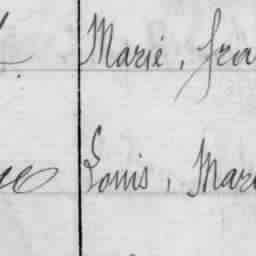 Marie, fra
Louis, Mar